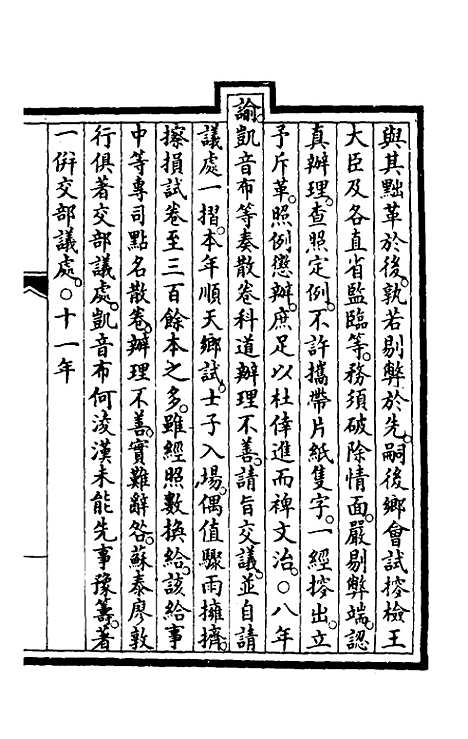 與其黜革於後。孰若剔弊於先。嗣後鄉會試搜檢王
大臣及各直省監臨等。務須破除情面。嚴剔弊端。認
真辦理。查照定例。不許攜帶片紙隻字。一經搜出。立
予斥革。照例懲辦。庶足以杜倖進而裨文治。○八年
諭凱音布等奏散卷科道辦理不善。請旨交議。並自請
議處一摺。本年順天鄉試。士子入場。偶值驟雨擁擠。
擦損試卷至三百餘本之多。雖經照數換給。該給事
中等專司點名散卷。辦理不善。實難辭咎。蘇泰廖敦
行俱著交部議處。凱音布何淩漢未能先事豫籌。著
一併交部議處。○十一年